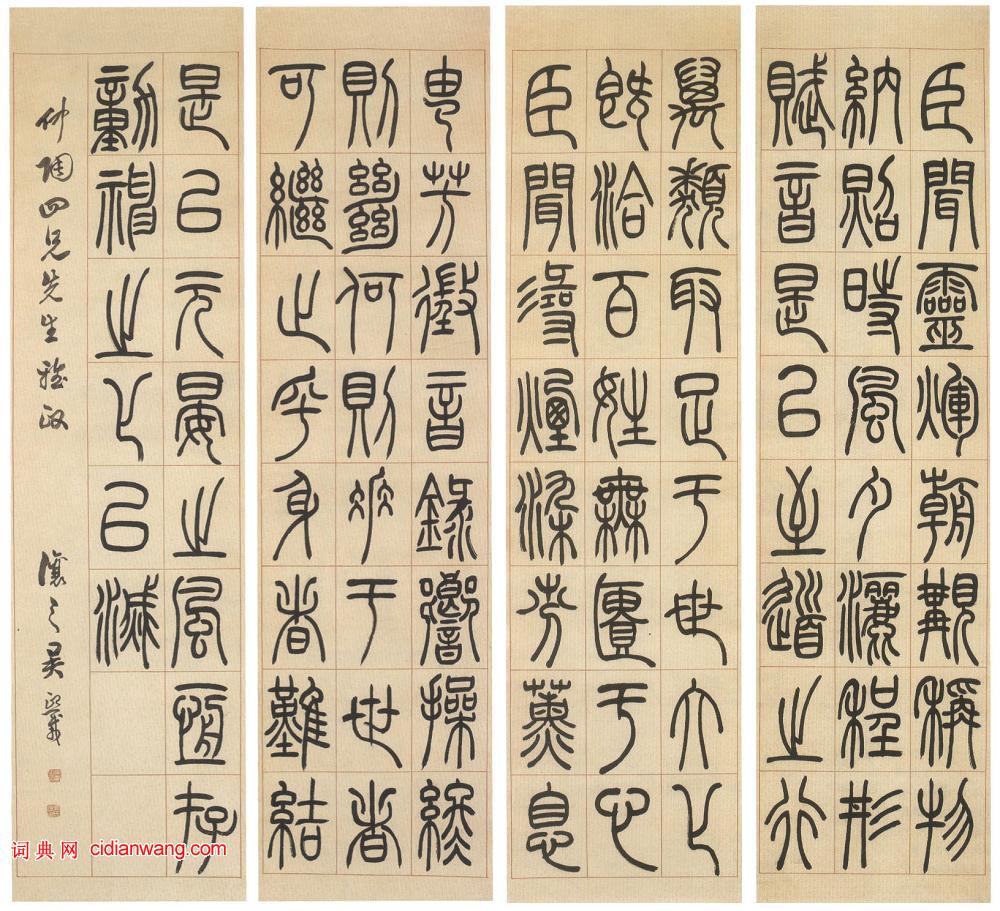 臣聞靈煇朝覯稱物
納照時風夕灑程形
賦音是以至道之行
萬類取足于世大化
既洽百姓無匱于心
臣聞尋煙染芬薰息
芳徵音錄響操終
則絕何則垂于世者
可繼止乎身者難結
是以元晏之風恆存
動神之化已滅
仲陶四兄先生雅政 讓之吳熙載
词典网 cidianwang.com